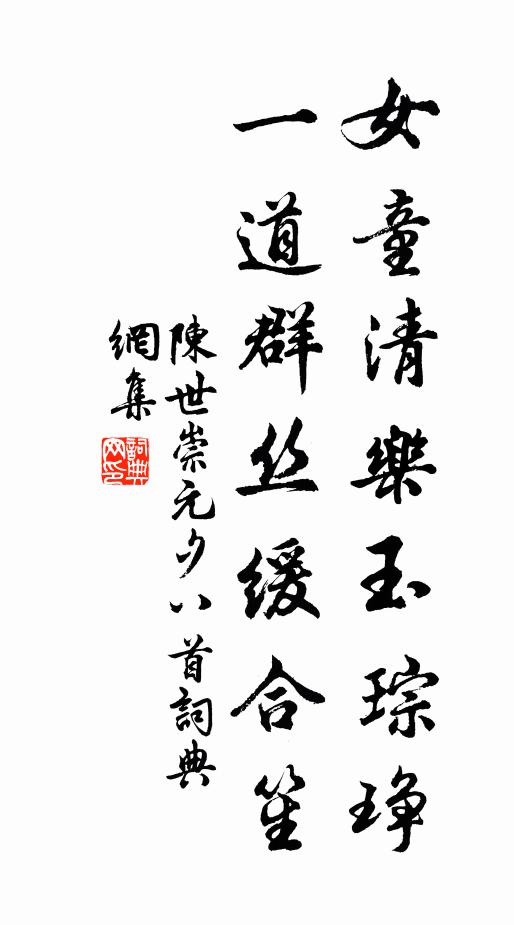 女童清樂玉琮琤
一道群丝緩合笙
陳世崇元夕八首詞典
網集
詞典网印